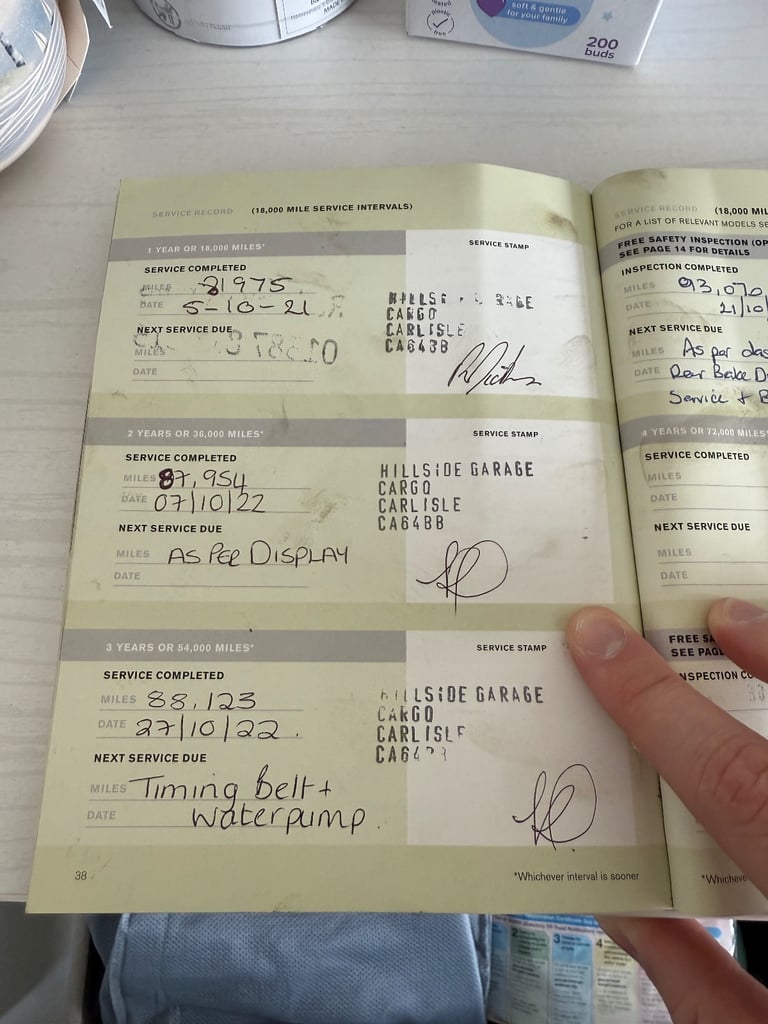 soft & gentle
for your family
200
buds
SERVICE RECORD (18,000 MILE SERVICE INTERVALS)
1 YEAR OR 18,000 MILES*
SERVICE STAMP
SERVICE COMPLETED
MILES 81975
DATE 5-10-21
NEXT SERVICE DUE
MILES
DATE
GARAGE
CARGO
CARLISLE
CA64BB
2 YEARS OR 36,000 MILES*
SERVICE STAMP
SERVICE COMPLETED
MILES 87,954
DATE 07/10/22
NEXT SERVICE DUE
MILES AS PER DISPLAY
DATE
HILLSIDE GARAGE
CARGO
CARLISLE
CA64BB
3 YEARS OR 54,000 MILES*
SERVICE STAMP
SERVICE COMPLETED
MILES 88,123
DATE 27/10/22.
NEXT SERVICE DUE
MILES Timing Belt +
DATE Waterpump.
HILLSIDE GARAGE
CARGO
CARLISLE
38
*Whichever interval is sooner
SERVICE RECORD (18,000
FOR A LIST OF RELEVANT MODELS
FREE SAFETY INSPECTION
SEE PAGE 14 FOR DETAILS
INSPECTION COMPLETED
MILES 93,070
DATE 21/10/
NEXT SERVICE DUE
MILES As per
DATE Rear Brake
Service +
4 YEARS OR 72,000 MILES*
SERVICE COMPLETED
MILES
DATE
NEXT SERVICE DUE
MILES
DATE
FREE
SEE
COMPLETED